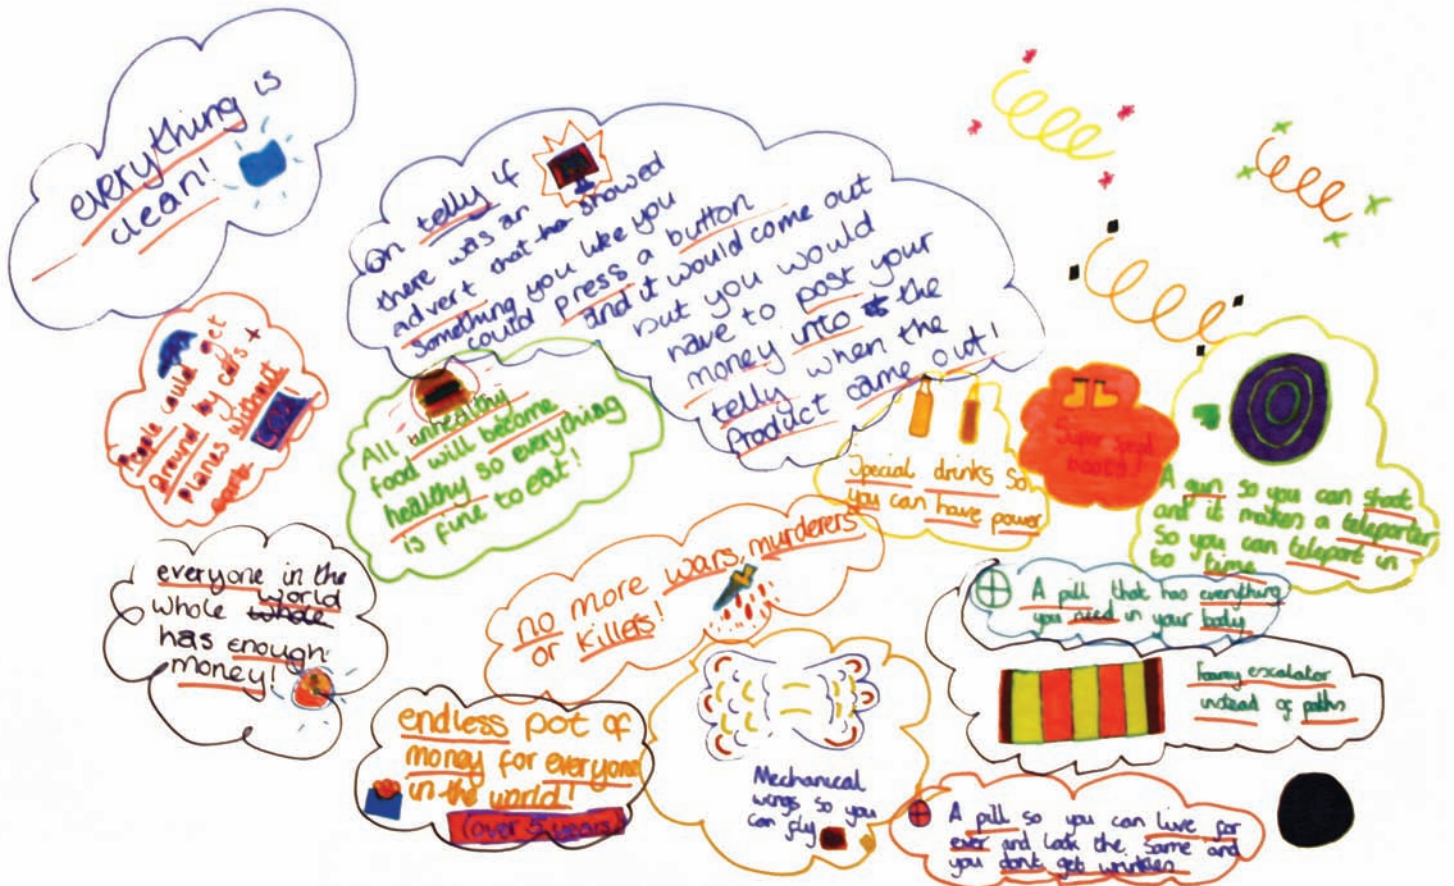 everything is
clean!
on telly if
there was an
advert that showed
something you like you
could press a button
and it would come out
but you would
have to post your
money into the
telly when the
Product came out!
People could get
around by cars +
planes without
All unhealthy
food will become
healthy so everything
is fine to eat!
Special drinks so
you can have power
Super speed
boots!
A gun so you can shoot
and it makes a teleporter
so you can teleport in
to time
everyone in the
whole world
has enough
money!
no more wars, murderers
or killers!
A pill that has everything
you need in your body
escalator
instead of paths
endless pot of
money for everyone
in the world!
(over 5 years)
Mechanical
wings so you
can fly
A pill so you can live for
ever and look the same and
you dont get wrinkles